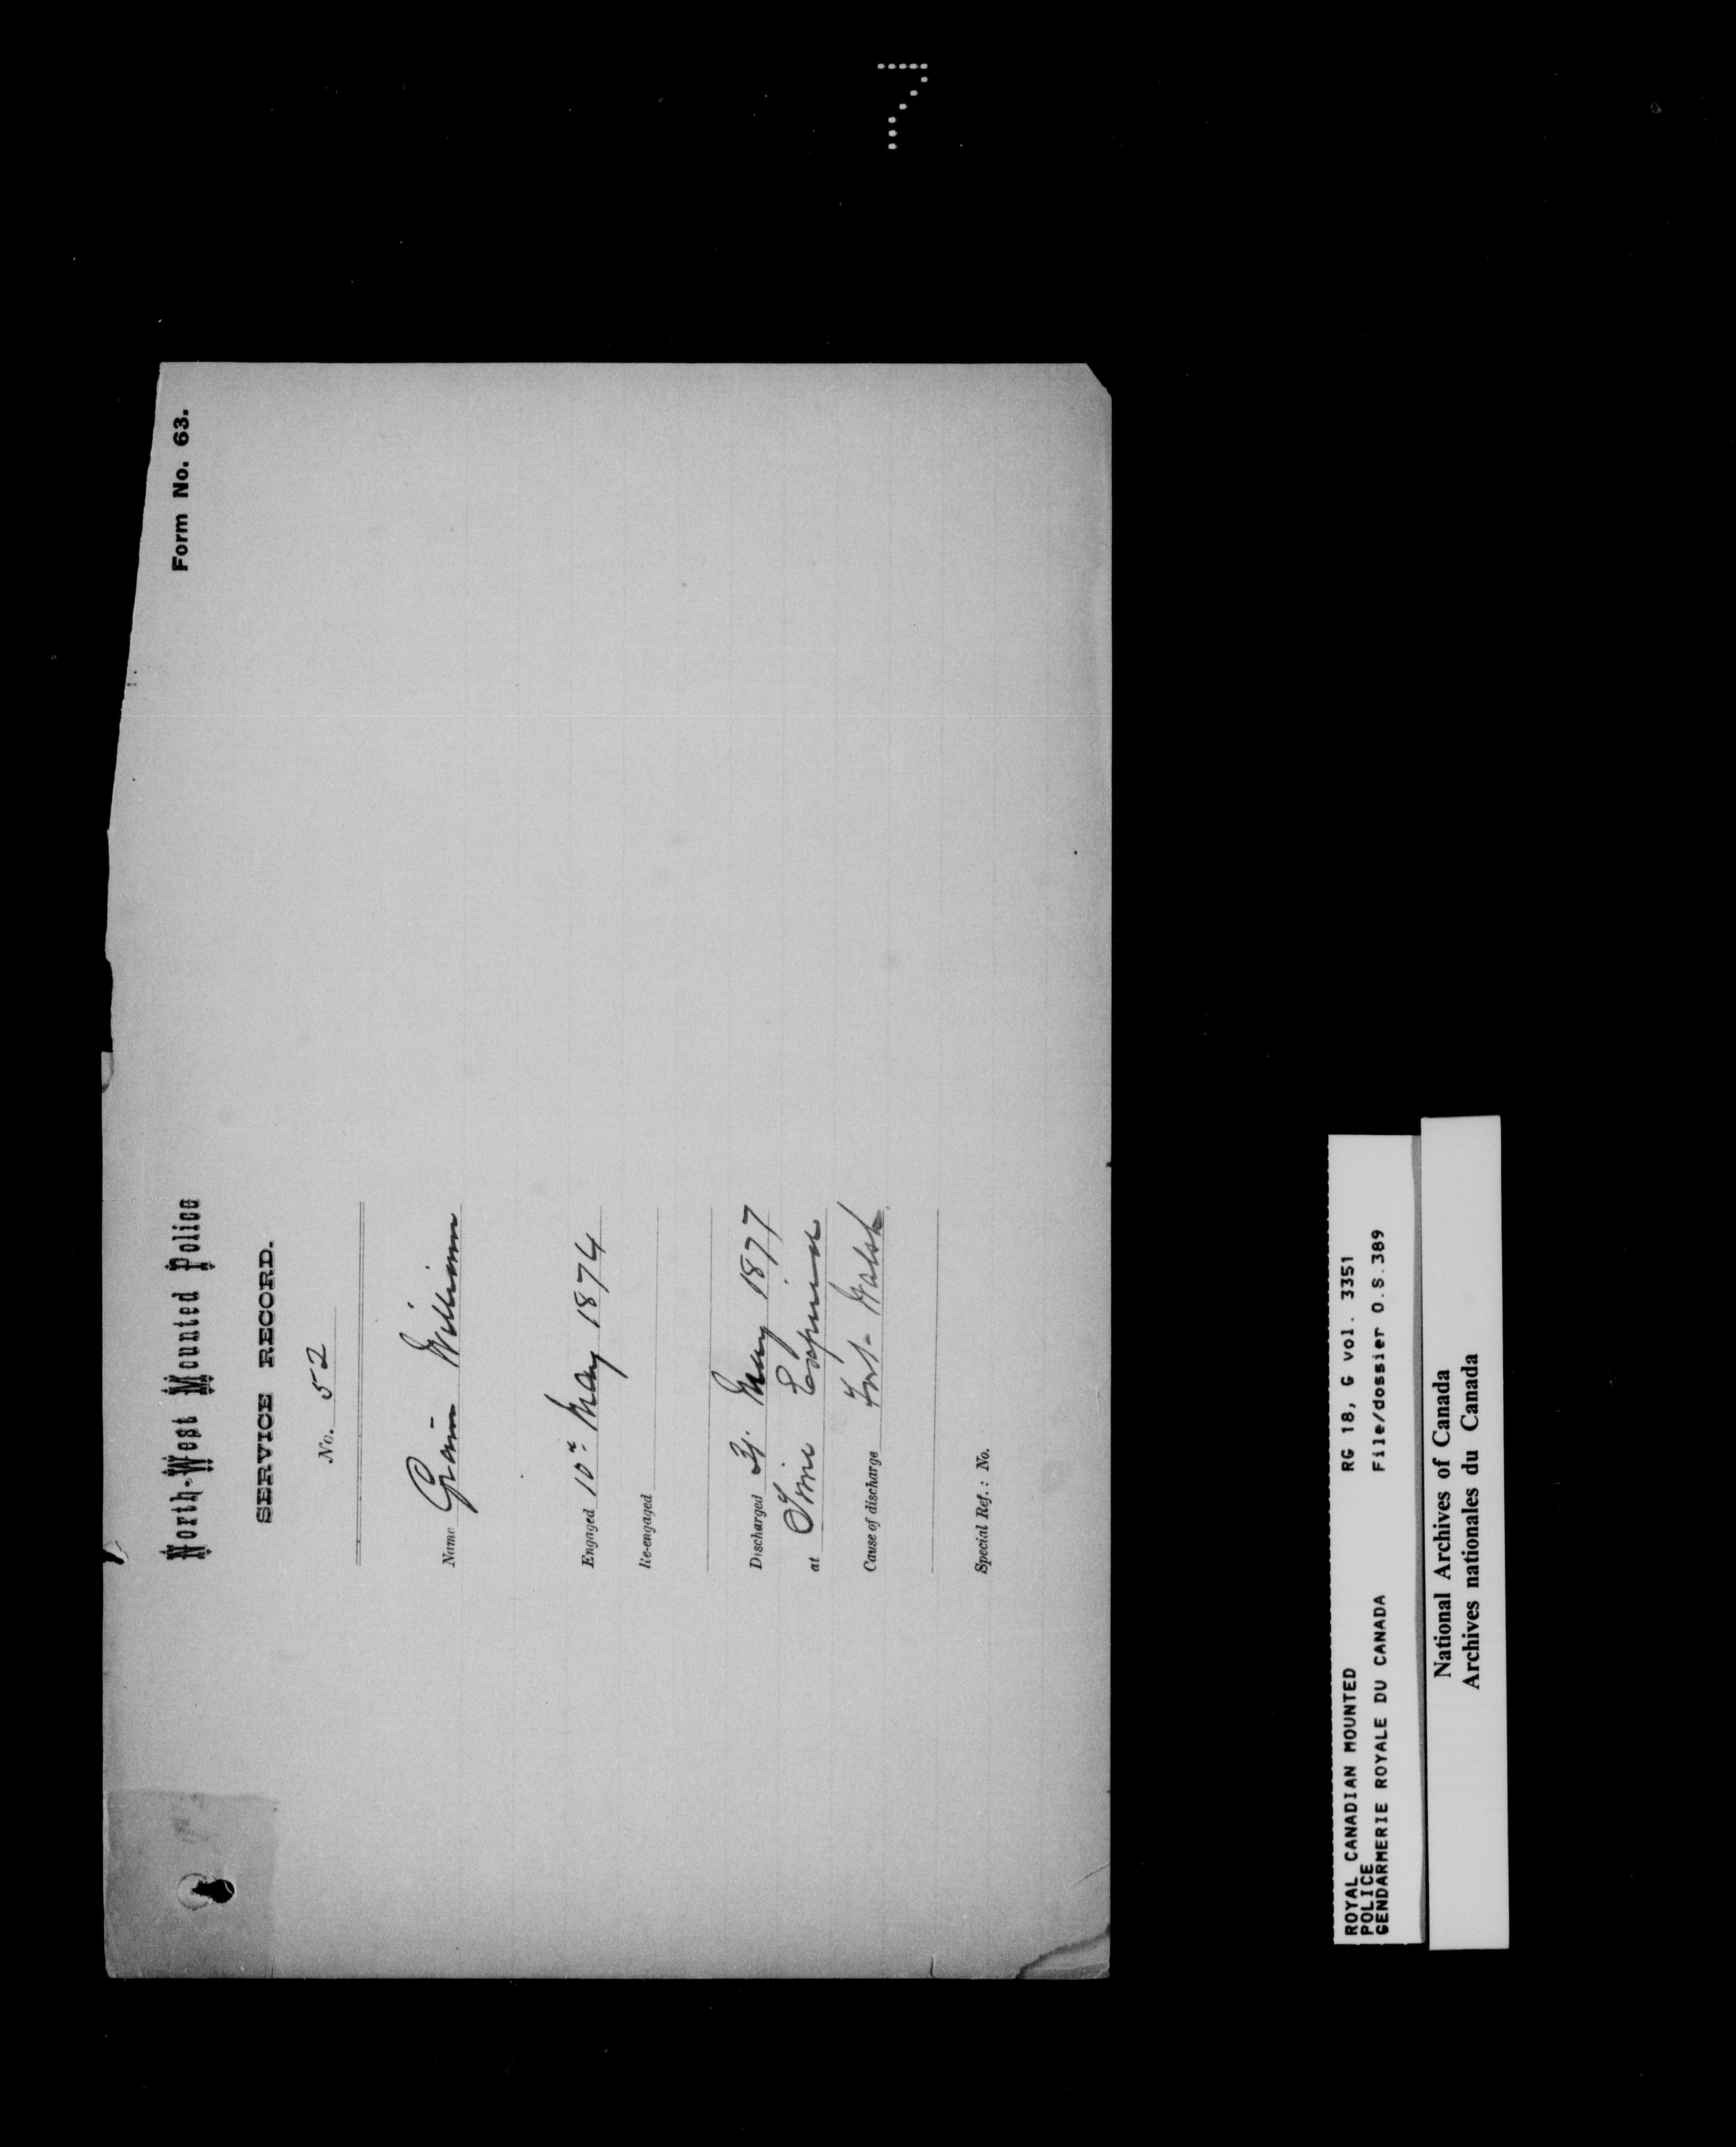 Form No. 63.
North-West Mounted Police
SERVICE RECORD.
No. 52
Name Grain William
Engaged 10th May 1874
Re-engaged
Discharged May 1877
at Time Expired
Cause of discharge Fort Walsh
Special Ref.: No.
ROYAL CANADIAN MOUNTED RG 18, G vol. 3351
POLICE
GENDARMERIE ROYALE DU CANADA File/dossier O.S.389
National Archives of Canada
Archives nationales du Canada